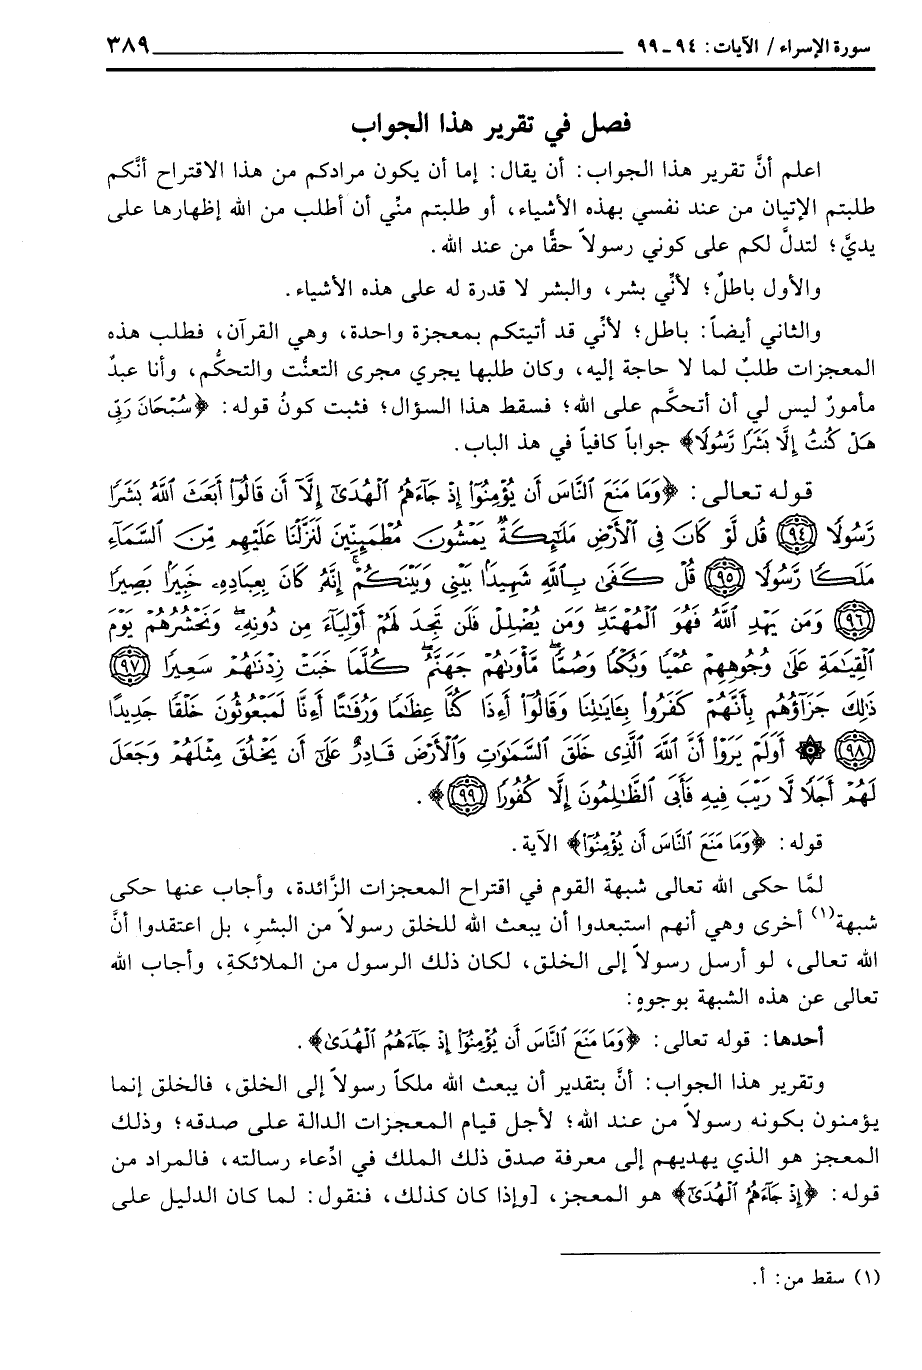 سورة الإسراء / الآيات: ٩٤ـ ٩٩ ٣٨٩
فصل في تقرير هذا الجواب
اعلم أنَّ تقرير هذا الجواب: أن يقال: إما أن يكون مرادكم من هذا الاقتراح أنَّكم
طلبتم الإتيان من عند نفسي بهذه الأشياء، أو طلبتم منِّي أن أطلب من الله إظهارها على
يديَّ؛ لتدلَّ لكم على كوني رسولاً حقًّا من عند الله.
والأول باطلٌ؛ لأنِّي بشر، والبشر لا قدرة له على هذه الأشياء.
والثاني أيضاً: باطل؛ لأنِّي قد أتيتكم بمعجزة واحدة، وهي القرآن، فطلب هذه
المعجزات طلبٌ لما لا حاجة إليه، وكان طلبها يجري مجرى التعنُّت والتحكُّم، وأنا عبدٌ
مأمورٌ ليس لي أن أتحكَّم على الله؛ فسقط هذا السؤال؛ فثبت كونُ قوله: ﴿سُبۡحَانَ رَبِّي
هَلۡ كُنتُ إِلَّا بَشَرٗا رَّسُولٗا﴾ جواباً كافياً في هذ الباب.
قوله تعالى: ﴿وَمَا مَنَعَ ٱلنَّاسَ أَن يُؤۡمِنُوٓاْ إِذۡ جَآءَهُمُ ٱلۡهُدَىٰٓ إِلَّآ أَن قَالُوٓاْ أَبَعَثَ ٱللَّهُ بَشَرٗا
رَّسُولٗا ٩٤ قُل لَّوۡ كَانَ فِي ٱلۡأَرۡضِ مَلَٰٓئِكَةٞ يَمۡشُونَ مُطۡمَئِنِّينَ لَنَزَّلۡنَا عَلَيۡهِم مِّنَ ٱلسَّمَآءِ
مَلَكٗا رَّسُولٗا ٩٥ قُلۡ كَفَىٰ بِٱللَّهِ شَهِيدَۢا بَيۡنِي وَبَيۡنَكُمۡۚ إِنَّهُۥ كَانَ بِعِبَادِهِۦ خَبِيرَۢا بَصِيرٗا
٩٦ وَمَن يَهۡدِ ٱللَّهُ فَهُوَ ٱلۡمُهۡتَدِۖ وَمَن يُضۡلِلۡ فَلَن تَجِدَ لَهُمۡ أَوۡلِيَآءَ مِن دُونِهِۦۖ وَنَحۡشُرُهُمۡ يَوۡمَ
ٱلۡقِيَٰمَةِ عَلَىٰ وُجُوهِهِمۡ عُمۡيٗا وَبُكۡمٗا وَصُمّٗاۖ مَّأۡوَىٰهُمۡ جَهَنَّمُۖ كُلَّمَا خَبَتۡ زِدۡنَٰهُمۡ سَعِيرٗا ٩٧
ذَٰلِكَ جَزَآؤُهُم بِأَنَّهُمۡ كَفَرُواْ بِـَٔايَٰتِنَا وَقَالُوٓاْ أَءِذَا كُنَّا عِظَٰمٗا وَرُفَٰتًا أَءِنَّا لَمَبۡعُوثُونَ خَلۡقٗا جَدِيدًا
٩٨ ۞ أَوَلَمۡ يَرَوۡاْ أَنَّ ٱللَّهَ ٱلَّذِي خَلَقَ ٱلسَّمَٰوَٰتِ وَٱلۡأَرۡضَ قَادِرٌ عَلَىٰٓ أَن يَخۡلُقَ مِثۡلَهُمۡ وَجَعَلَ
لَهُمۡ أَجَلٗا لَّا رَيۡبَ فِيهِ فَأَبَى ٱلظَّٰلِمُونَ إِلَّا كُفُورٗا ٩٩﴾.
قوله: ﴿وَمَا مَنَعَ ٱلنَّاسَ أَن يُؤۡمِنُوٓاْ﴾ الآية.
لمَّا حكى الله تعالى شبهة القوم في اقتراح المعجزات الزَّائدة، وأجاب عنها حكى
شبهة(١) أخرى وهي أنهم استبعدوا أن يبعث الله للخلق رسولاً من البشرِ، بل اعتقدوا أنَّ
الله تعالى، لو أرسل رسولاً إلى الخلق، لكان ذلك الرسول من الملائكةِ، وأجاب الله
تعالى عن هذه الشبهة بوجوهٍ:
أحدها: قوله تعالى: ﴿وَمَا مَنَعَ ٱلنَّاسَ أَن يُؤۡمِنُوٓاْ إِذۡ جَآءَهُمُ ٱلۡهُدَىٰٓ﴾.
وتقرير هذا الجواب: أنَّ بتقدير أن يبعث الله ملكاً رسولاً إلى الخلق، فالخلق إنما
يؤمنون بكونه رسولاً من عند الله؛ لأجل قيام المعجزات الدالة على صدقه؛ وذلك
المعجز هو الذي يهديهم إلى معرفة صدق ذلك الملك في ادِّعاء رسالته، فالمراد من
قوله: ﴿إِذۡ جَآءَهُمُ ٱلۡهُدَىٰٓ﴾ هو المعجز، [وإذا كان كذلك، فنقول: لما كان الدليل على
(١) سقط من: أ.